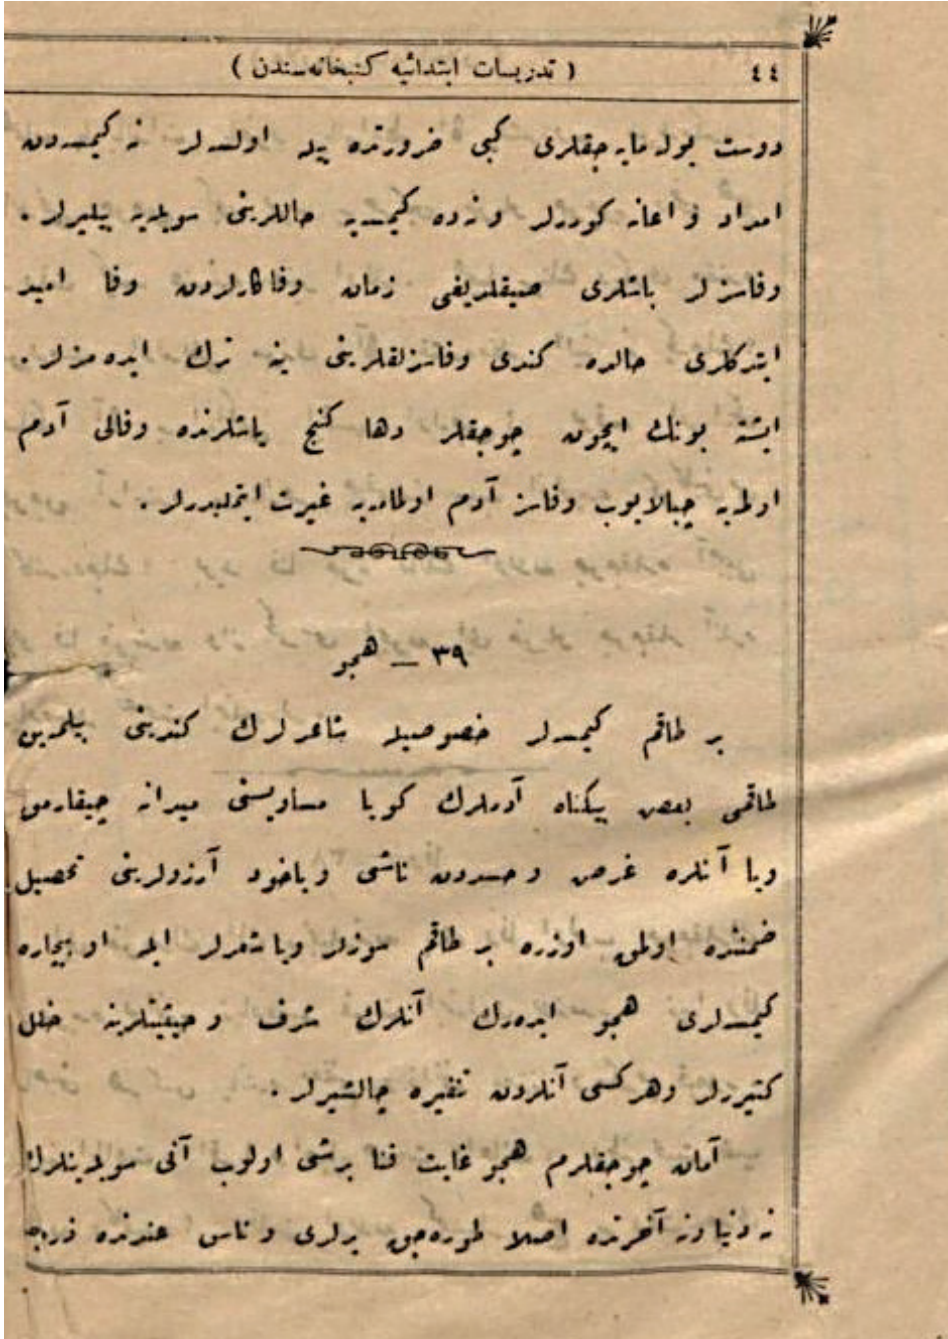 ٤٤ ( تدريسات ابتدائيه كتبخانه‌سندن )
دوست بوله‌مايه‌جقلری كبی ضرورتده بيله اولسه‌لر نه كيمسه‌دن
امداد و اعانه كوررلر و نه‌ده كيمسه‌يه حاللرينی سويليه بيليرلر .
وفاسزلر باشلری صيقلديغی زمان وفاكارلردن وفا اميد
ايتدكلری حالده كندی وفاسزلقلرينی ينه ترك ايده‌مزلر .
ايشته بونك ايچون چوجقلر دها كنج ياشلرنده وفالی آدم
اولمه‌يه چبالايوب وفاسز آدم اولمامه‌يه غيرت ايتمليدرلر .
٣٩ — هجو
بر طاقم كيمسه‌لر خصوصيله شاعرلرك كندينی بيلمه‌ين
طاقمی بعض بيكناه آدملرك كويا مساويسنی ميدانه چيقارمق
ويا آنلره غرض و حسددن ناشی وياخود آرزولرينی تحصيل
ضمننده اولمق اوزره بر طاقم سوزلر ويا شعرلر ايله او بيچاره
كيمسه‌لری هجو ايده‌رك آنلرك شرف و حيثيتلرينه خلل
كتيررلر وهركسی آنلردن تنفيره چاليشيرلر .
آمان چوجقلرم هجو غايت فنا برشی اولوب آنی سويلينلرك
نه دنيا ونه آخرتده اصلا طوره‌جق يرلری و ناس عندنده ذره‌جه